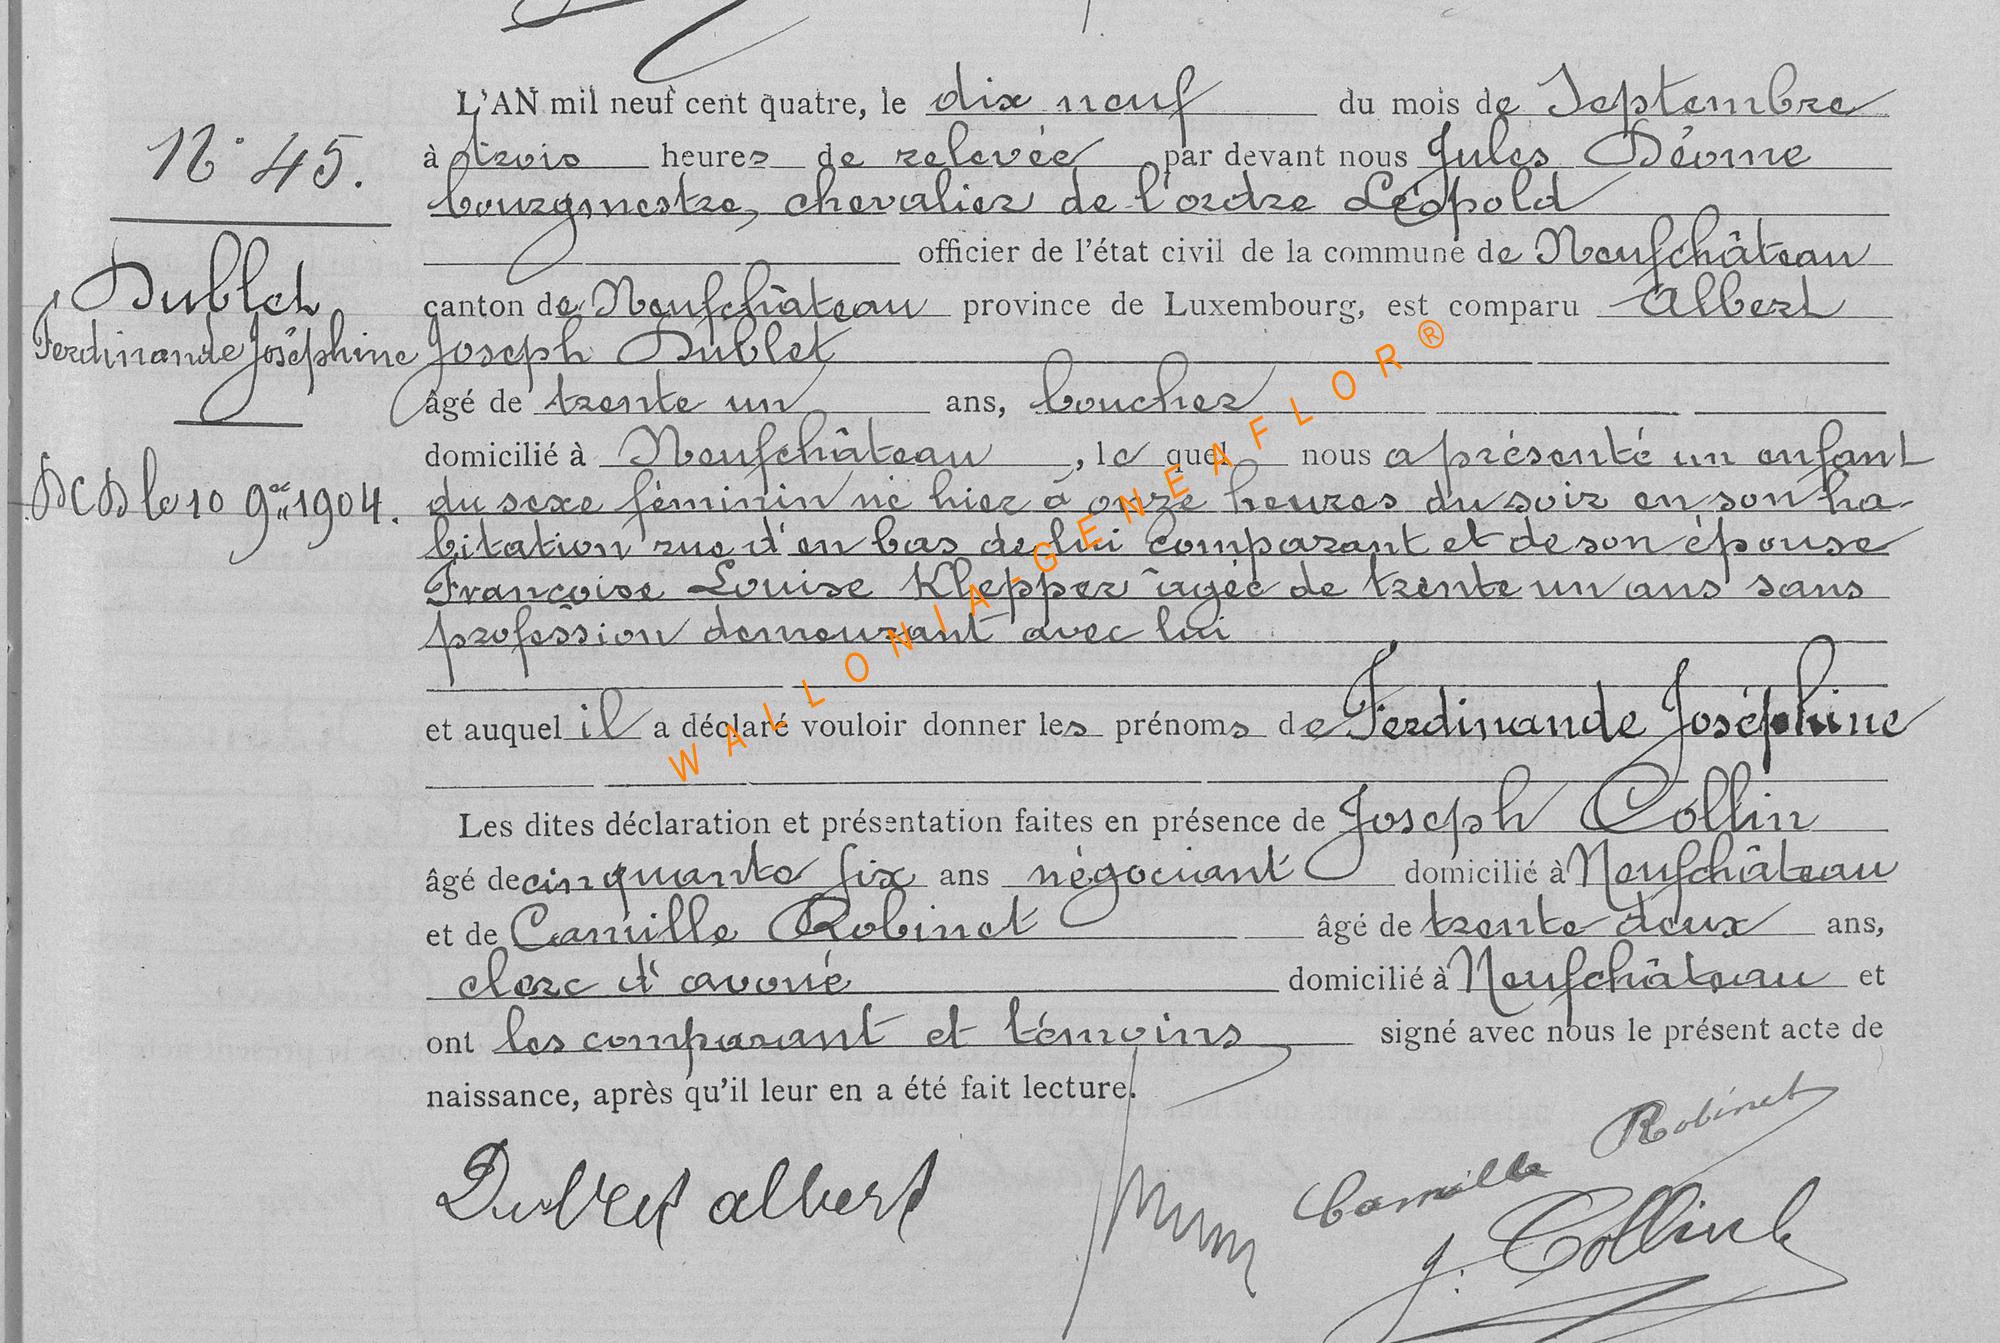 L'AN mil neuf cent quatre, le dix neuf du mois de Septembre
N° 45.
à trois heures de relevée par devant nous Jules
bourgmestre, chevalier de l'ordre Léopold
officier de l'état civil de la commune de Neufchâteau
Dublet
canton de Neufchâteau province de Luxembourg, est comparu Albert
Ferdinande Joséphine
Joseph Dublet
âgé de trente un ans, boucher
domicilié à Neufchâteau, le quel nous a présenté un enfant
DCD le 10 9bre 1904.
du sexe féminin né hier à onze heures du soir en son ha-
bitation rue d'en bas de lui comparant et de son épouse
Françoise Louise Klepper âgée de trente un ans sans
profession demeurant avec lui
et auquel il a déclaré vouloir donner les prénoms de Ferdinande Joséphine
Les dites déclaration et présentation faites en présence de Joseph Collin
âgé de cinquante six ans négociant domicilié à Neufchâteau
et de Camille Robinet âgé de trente deux ans,
clerc d'avoué domicilié à Neufchâteau et
ont les comparant et témoins signé avec nous le présent acte de
naissance, après qu'il leur en a été fait lecture.
Dublet albert
Camille Robinet
J. Collin
WALLONIA-GENEAFLOR®